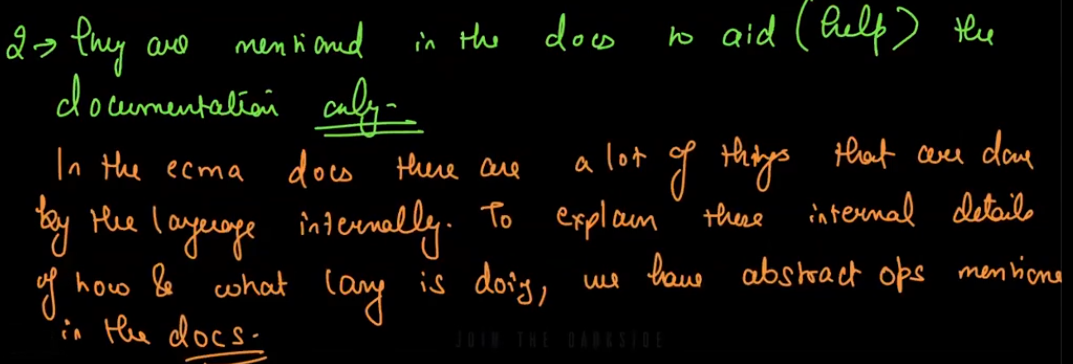 2→ They are mentioned in the docs to aid (help) the
documentation only-
In the ecma docs there are a lot of things that are done
by the language internally. To explain these internal details
of how & what lang is doing, we have abstract ops mentione
in the docs.
JOIN THE DARKSIDE